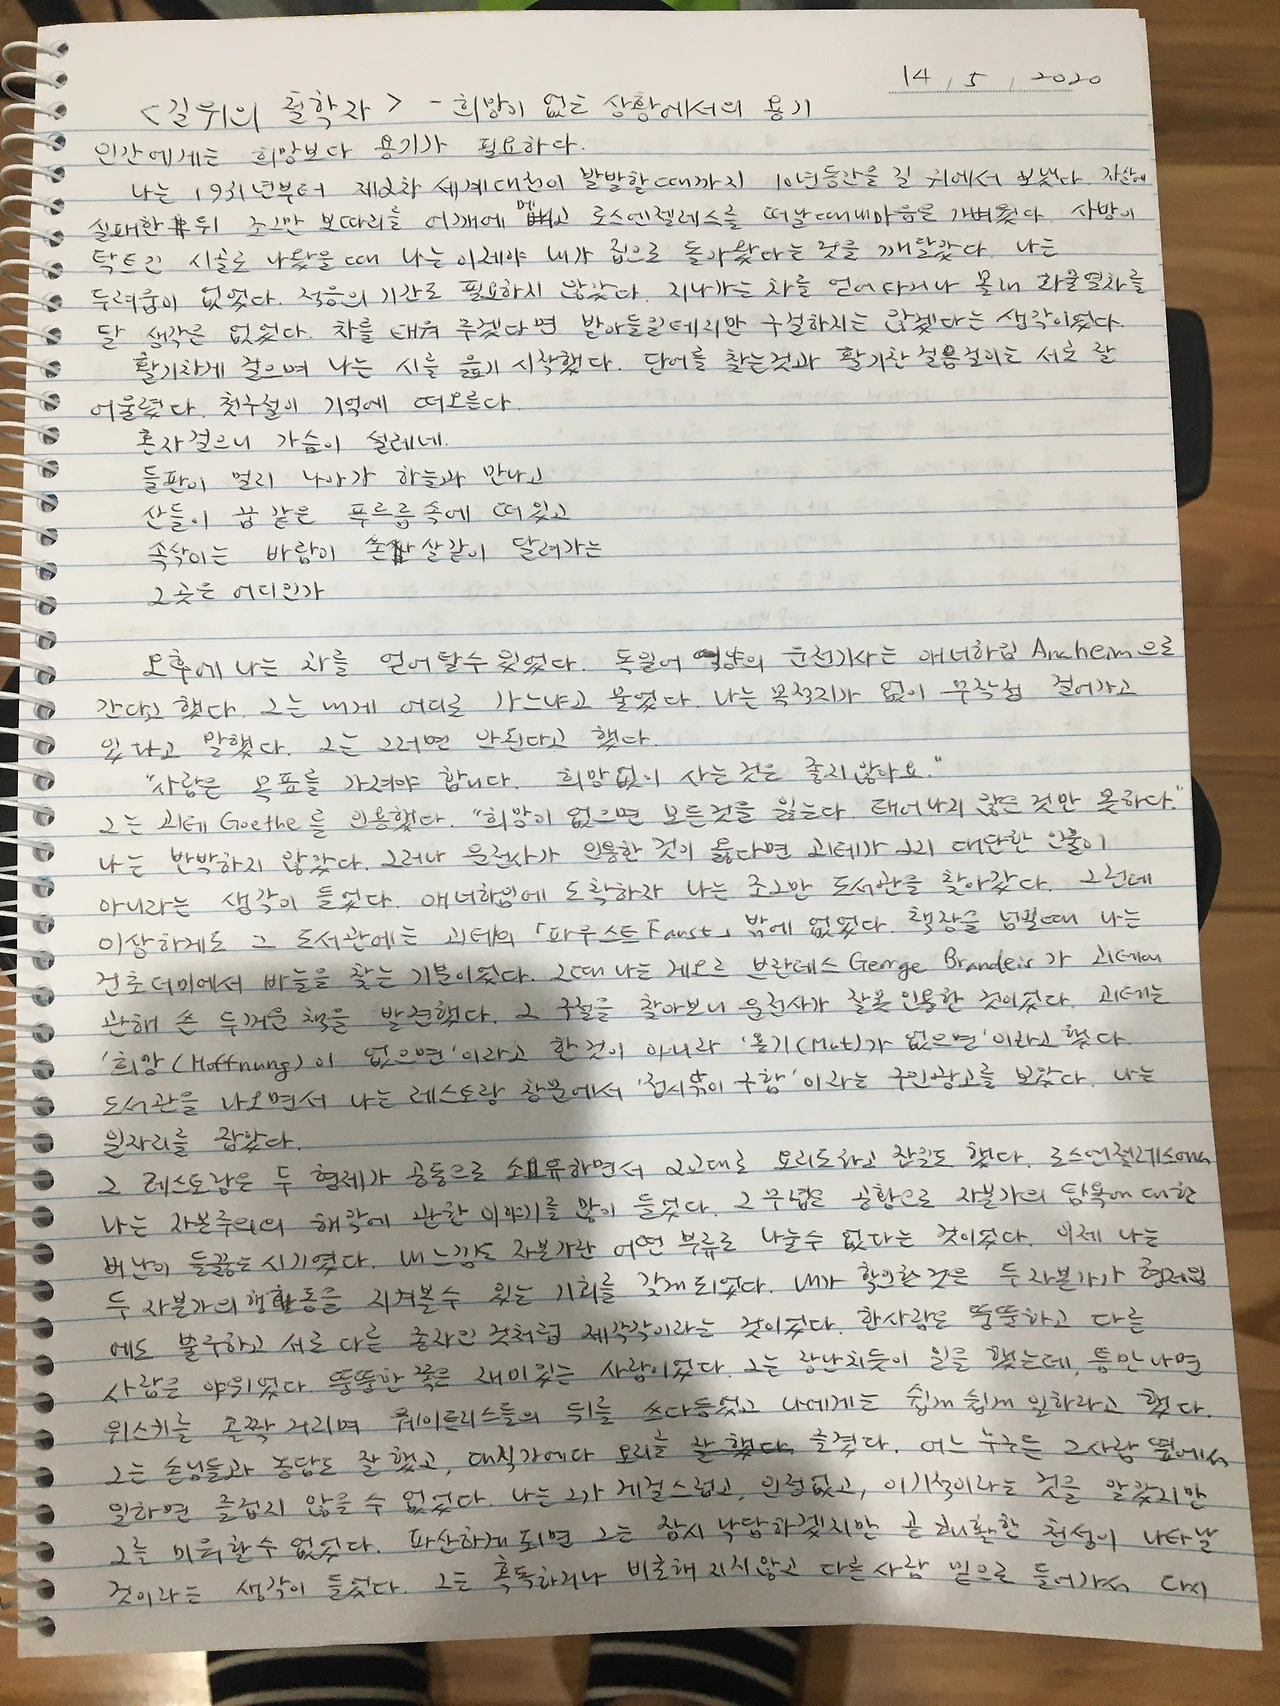 14, 5, 2020
<길위의 철학자> - 희망이 없는 상황에서의 용기
인간에게는 희망보다 용기가 필요하다.
나는 1931년부터 제2차 세계대전이 발발할때까지 10년동안을 길 위에서 보냈다. 자살에
실패한 뒤 조그만 보따리를 어깨에 메고 로스엔젤레스를 떠날때 내마음은 가벼웠다. 사방이
탁트긴 시골로 나왔을때 나는 이제야 내가 집으로 돌아왔다는 것을 깨달았다. 나는
두려움이 없었다. 적응의 기간도 필요하지 않았다. 지나가는 차를 얻어타거나 몰래 화물열차를
탈 생각은 없었다. 차를 태워 주겠다면 받아들일테지만 구걸하지는 않겠다는 생각이었다.
활기차게 걸으며 나는 시를 읊기 시작했다. 단어를 찾는것과 활기찬 걸음걸이는 서로 잘
어울렸다. 첫구절이 기억에 떠오른다.
혼자걸으니 가슴이 설레네.
들판이 멀리 나아가 하늘과 만나고
산들이 꿈 같은 푸르름속에 떠있고
속삭이는 바람이 쏜살같이 달려가는
그곳은 어디인가
오후에 나는 차를 얻어탈수 있었다. 독일어 억양의 운전기사는 애너하임 Anaheim으로
간다고 했다. 그는 내게 어디로 가느냐고 물었다. 나는 목적지가 없이 무작정 걸어가고
있다고 말했다. 그는 그러면 안된다고 했다.
"사람은 목표를 가져야 합니다. 희망없이 사는 것은 좋지않아요."
그는 괴테 Goethe를 인용했다. "희망이 없으면 모든것을 잃는다. 태어나지 않은 것만 못하다."
나는 반박하지 않았다. 그러나 운전사가 인용한 것이 옳다면 괴테가 그리 대단한 인물이
아니라는 생각이 들었다. 애너하임에 도착하자 나는 조그만 도서관을 찾아갔다. 그런데
이상하게도 그 도서관에는 괴테의 「파우스트Faust」밖에 없었다. 책장을 넘길때 나는
건초더미에서 바늘을 찾는 기분이었다. 그때 나는 게오르 브란데스 George Brandeis가 괴테에
관해 쓴 두꺼운 책을 발견했다. 그 구절을 찾아보니 운전사가 잘못 인용한 것이었다. 괴테는
'희망(Hoffnung)이 없으면'이라고 한것이 아니라 '용기(Mut)가 없으면'이라고 했다.
도서관을 나오면서 나는 레스토랑 창문에서 '접시닦이 구함'이라는 구인광고를 보았다. 나는
일자리를 잡았다.
그 레스토랑은 두 형제가 공동으로 소유하면서 2교대로 요리도하고 잔일도 했다. 로스엔젤레스에서
나는 자본주의의 해악에 관한 이야기를 많이 들었다. 그 무렵은 공황으로 자본가의 탐욕에 대한
비난이 들끓는 시기였다. 내 느낌도 자본가란 어떤 부류로 나눌수 없다는 것이었다. 이제 나는
두 자본가의 행동을 지켜볼수 있는 기회를 갖게 되었다. 내가 확인한 것은 두 자본가가 형제임
에도 불구하고 서로 다른 종자인 것처럼 제각각이라는 것이었다. 한사람은 뚱뚱하고 다른
사람은 야위었다. 뚱뚱한 쪽은 재미있는 사람이었다. 그는 장난치듯이 일을 했는데, 틈만나면
위스키를 홀짝 거리며 웨이트리스들의 뒤를 쓰다듬었고 나에게는 쉽게 쉽게 일하라고 했다.
그는 손님들과 농담도 잘 했고, 대식가에다 요리를 즐겼다. 어느 누구든 그사람 옆에서
일하면 즐겁지 않을 수 없었다. 나는 그가 게걸스럽고, 인정없고, 이기적이라는 것을 알았지만
그를 미워할수 없었다. 파산하게 되면 그는 잠시 낙담하겠지만 곧 쾌활한 천성이 나타날
것이라는 생각이 들었다. 그는 혹독하거나 비굴해 지지않고 다른사람 밑으로 들어가서 다시